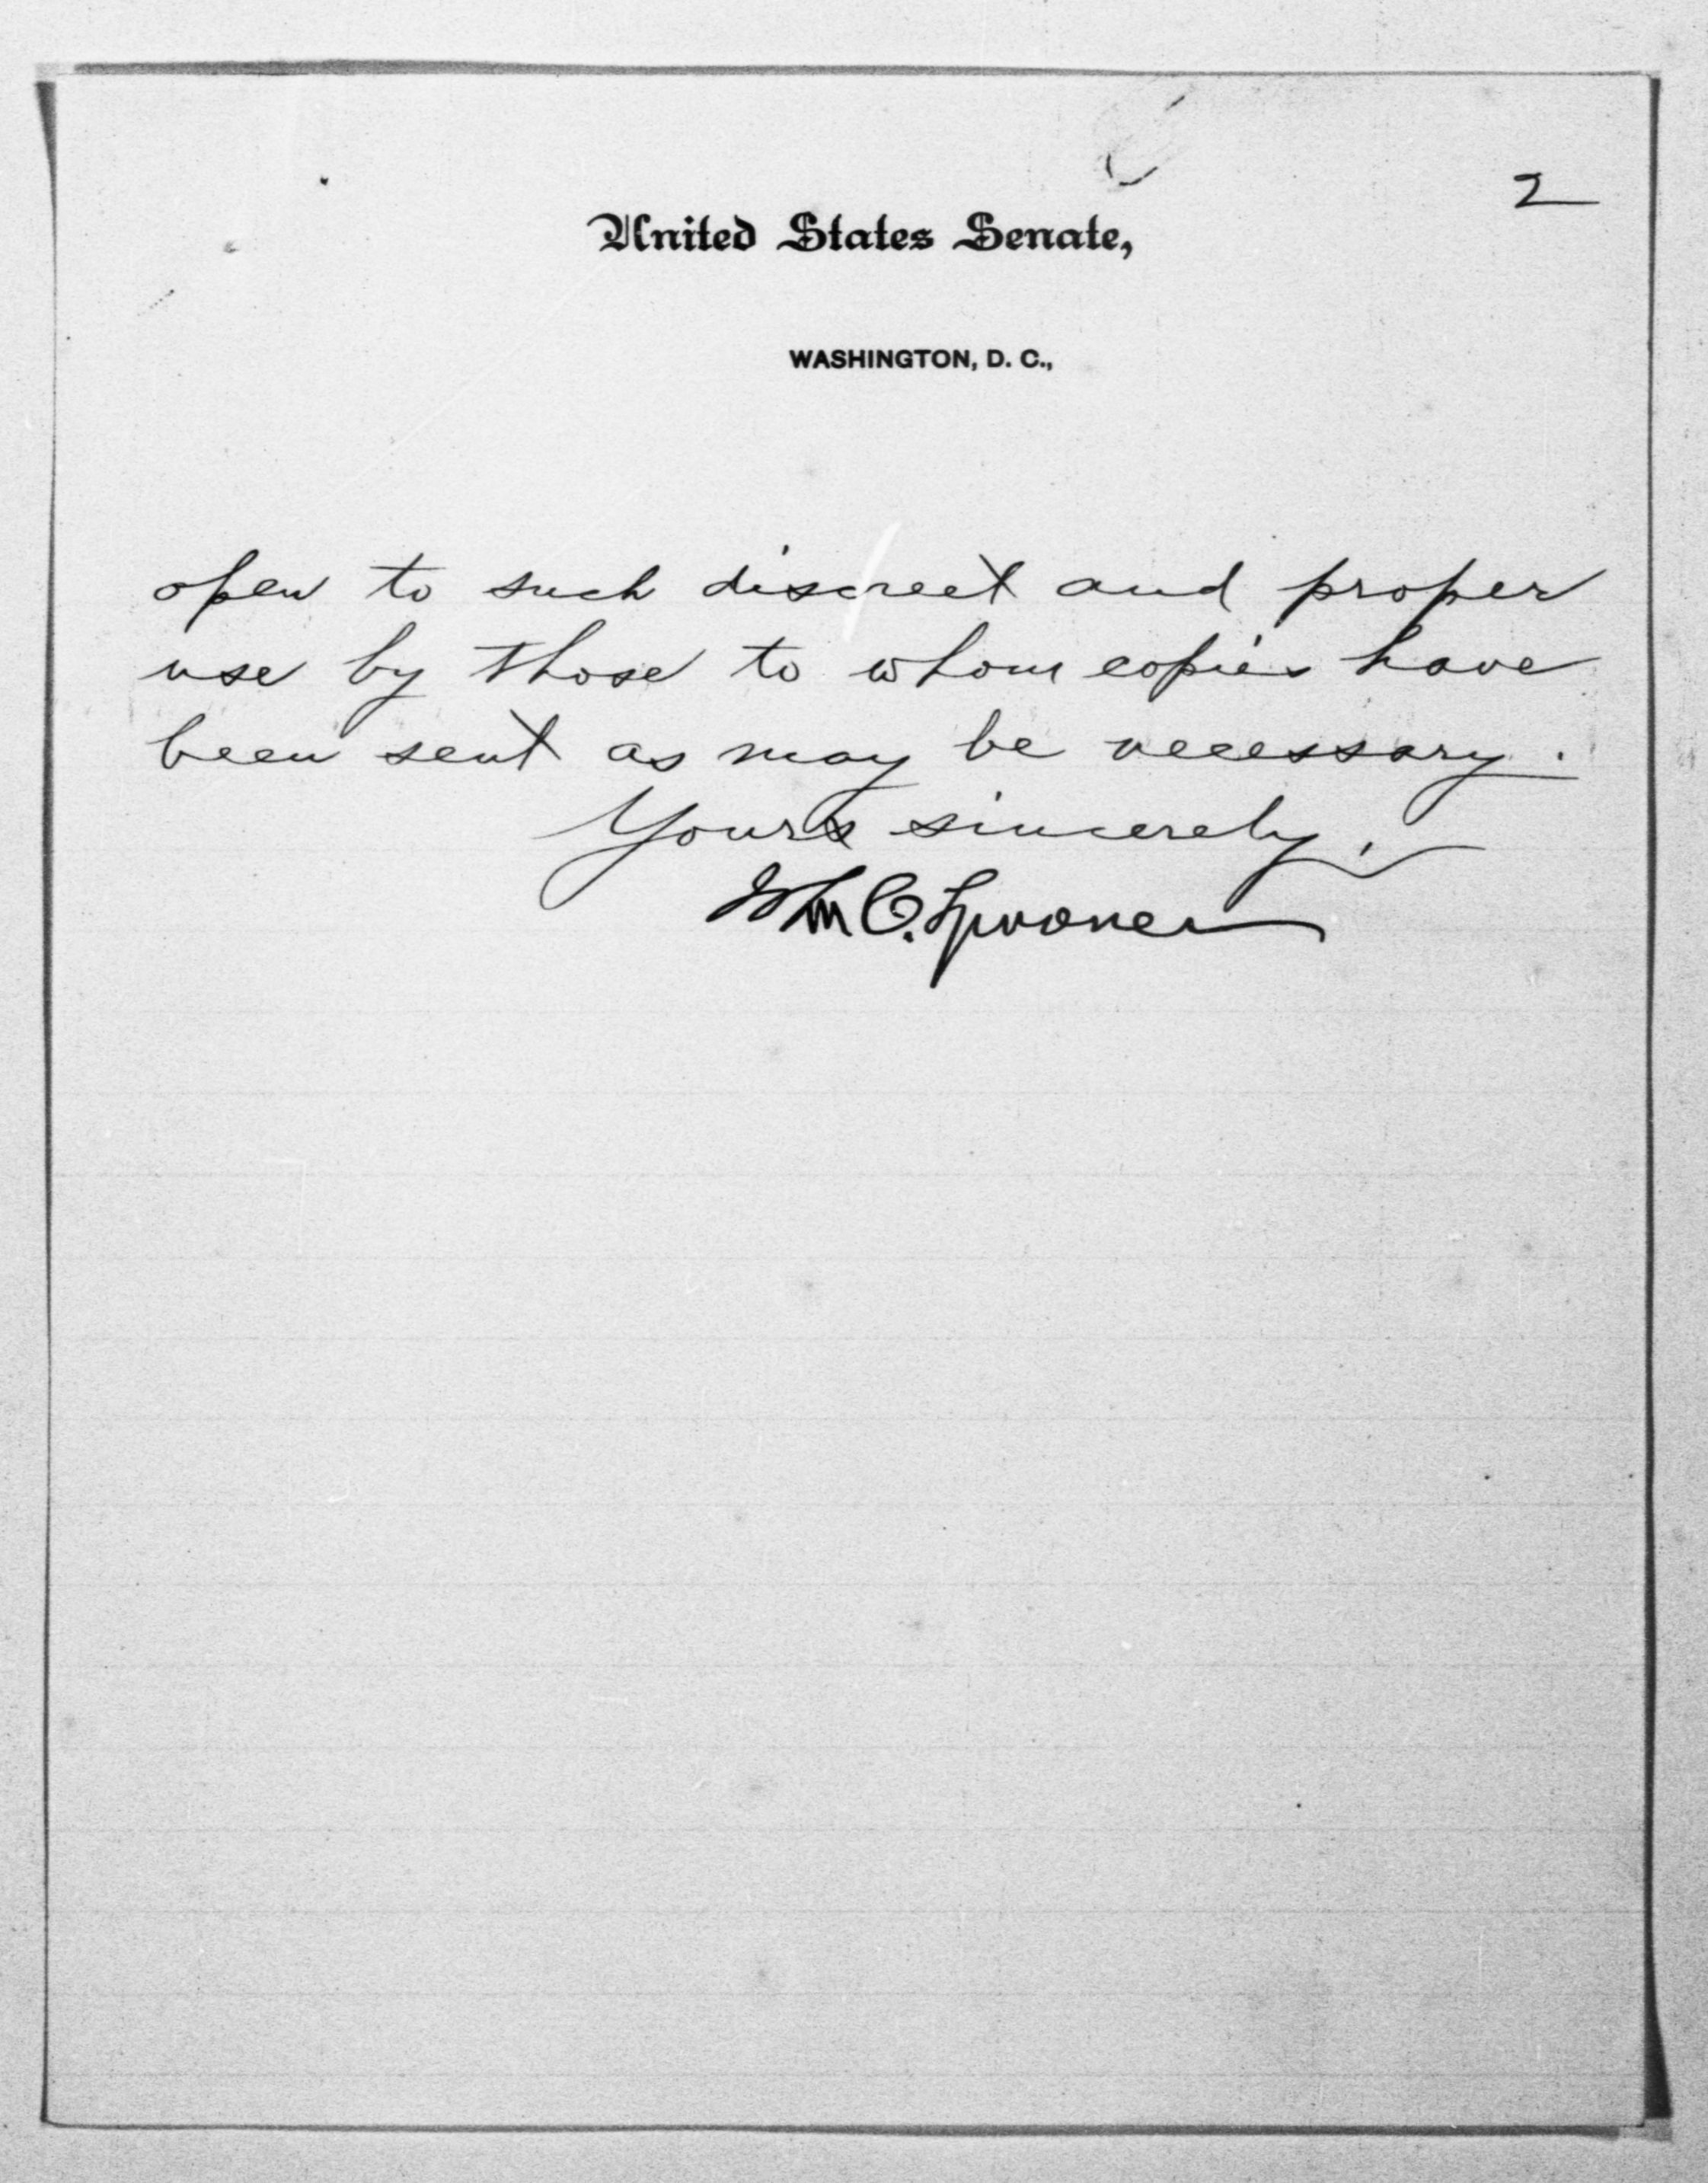 2
United States Senate,
WASHINGTON, D. C.,
open to such discreet and proper
use by those to whom copies have
been sent as may be necessary.
Yours sincerely,
Wm C. Spooner